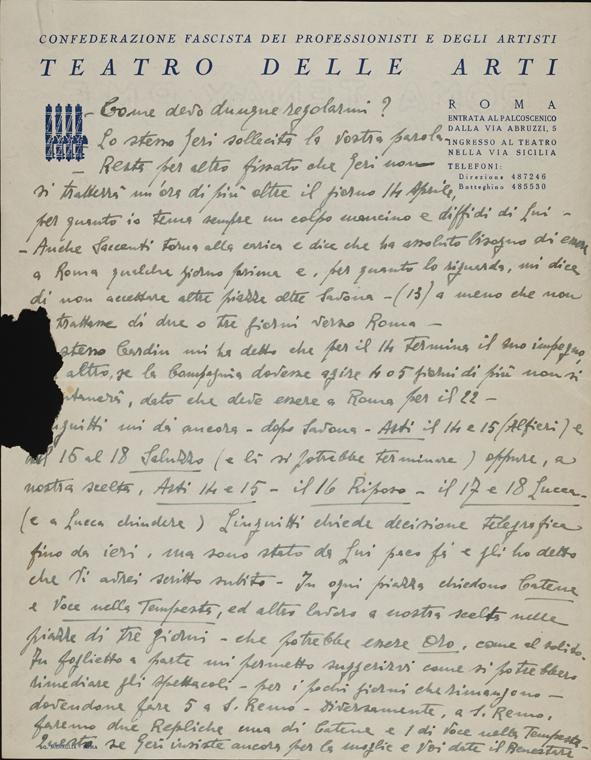 CONFEDERAZIONE FASCISTA DEI PROFESSIONISTI E DEGLI ARTISTI
TEATRO DELLE ARTI
ROMA
ENTRATA AL PALCOSCENICO
DALLA VIA ABRUZZI, 5
INGRESSO AL TEATRO
NELLA VIA SICILIA
TELEFONI:
Direzione 487246
Botteghino 485530
- Come devo dunque regolarmi?
Lo stesso Geri sollecita la vostra parola -
- Resta per altro fissato che Geri non
si tratterrà un'ora di più oltre il giorno 14 Aprile,
per quanto io tema sempre un colpo mancino e diffidi di Lui -
- Anche Saccenti torna alla carica e dice che ha assoluto bisogno di essere
a Roma qualche giorno prima e, per quanto lo riguarda, mi dice
di non accettare altre piazze oltre Savona - (13) a meno che non
trattasse di due o tre giorni verso Roma -
stesso Cardin mi ha detto che per il 14 termina il suo impegno,
altro, se la Compagnia dovesse agire 4 o 5 giorni di più non si
, dato che deve essere a Roma per il 22 -
mi dà ancora - dopo Savona - Asti il 14 e 15 (Alfieri) e
dal 16 al 18 Saluzzo (e lì si potrebbe terminare) oppure, a
nostra scelta, Asti 14 e 15 - il 16 Riposo - il 17 e 18 Lucca -
(e a Lucca chiudere) Linguitti chiede decisione telegrafica
fino da ieri, ma sono stato da Lui poco fa e gli ho detto
che Vi avrei scritto subito - In ogni piazza chiedono Catene
e Voce nella Tempesta, ed altro lavoro a nostra scelta nelle
piazze di tre giorni - che potrebbe essere Oro, come al solito.
In foglietto a parte mi permetto suggerirvi come si potrebbero
rimediare gli spettacoli - per i pochi giorni che rimangono -
dovendone fare 5 a S. Remo - Diversamente, a S. Remo,
faremo due Repliche una di Catene e 1 di Voce nella Tempesta -
Questo se Geri insiste ancora per la moglie e Voi date il Benestare